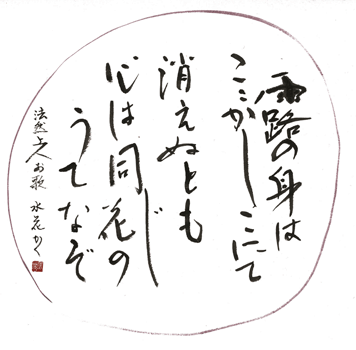 露の身は
ここかしこにて
消えぬとも
心は同じ
花の
うてなぞ
法然上人お歌 水花かく